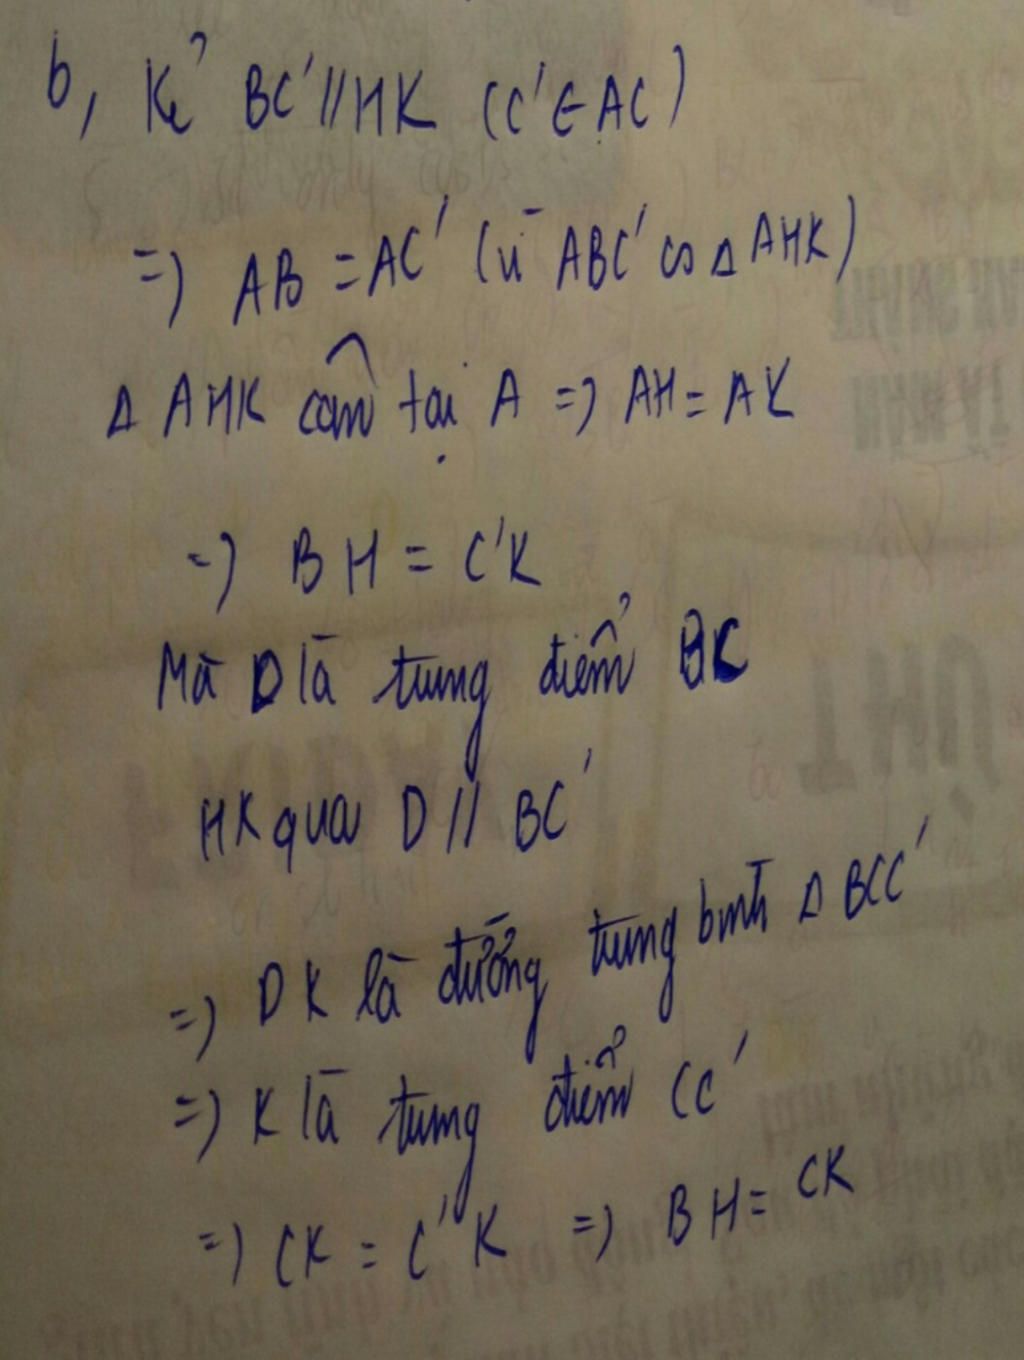 b, Kẻ BC' // HK (C' ∈ AC)
=> AB = AC' (vì ABC' ∽ Δ AHK)
Δ AHK cân tại A => AH = AK
=> BH = C'K
Mà D là trung điểm BC
HK qua D // BC'
=> DK là đường trung bình Δ BCC'
=> K là trung điểm CC'
=> CK = C'K => BH = CK